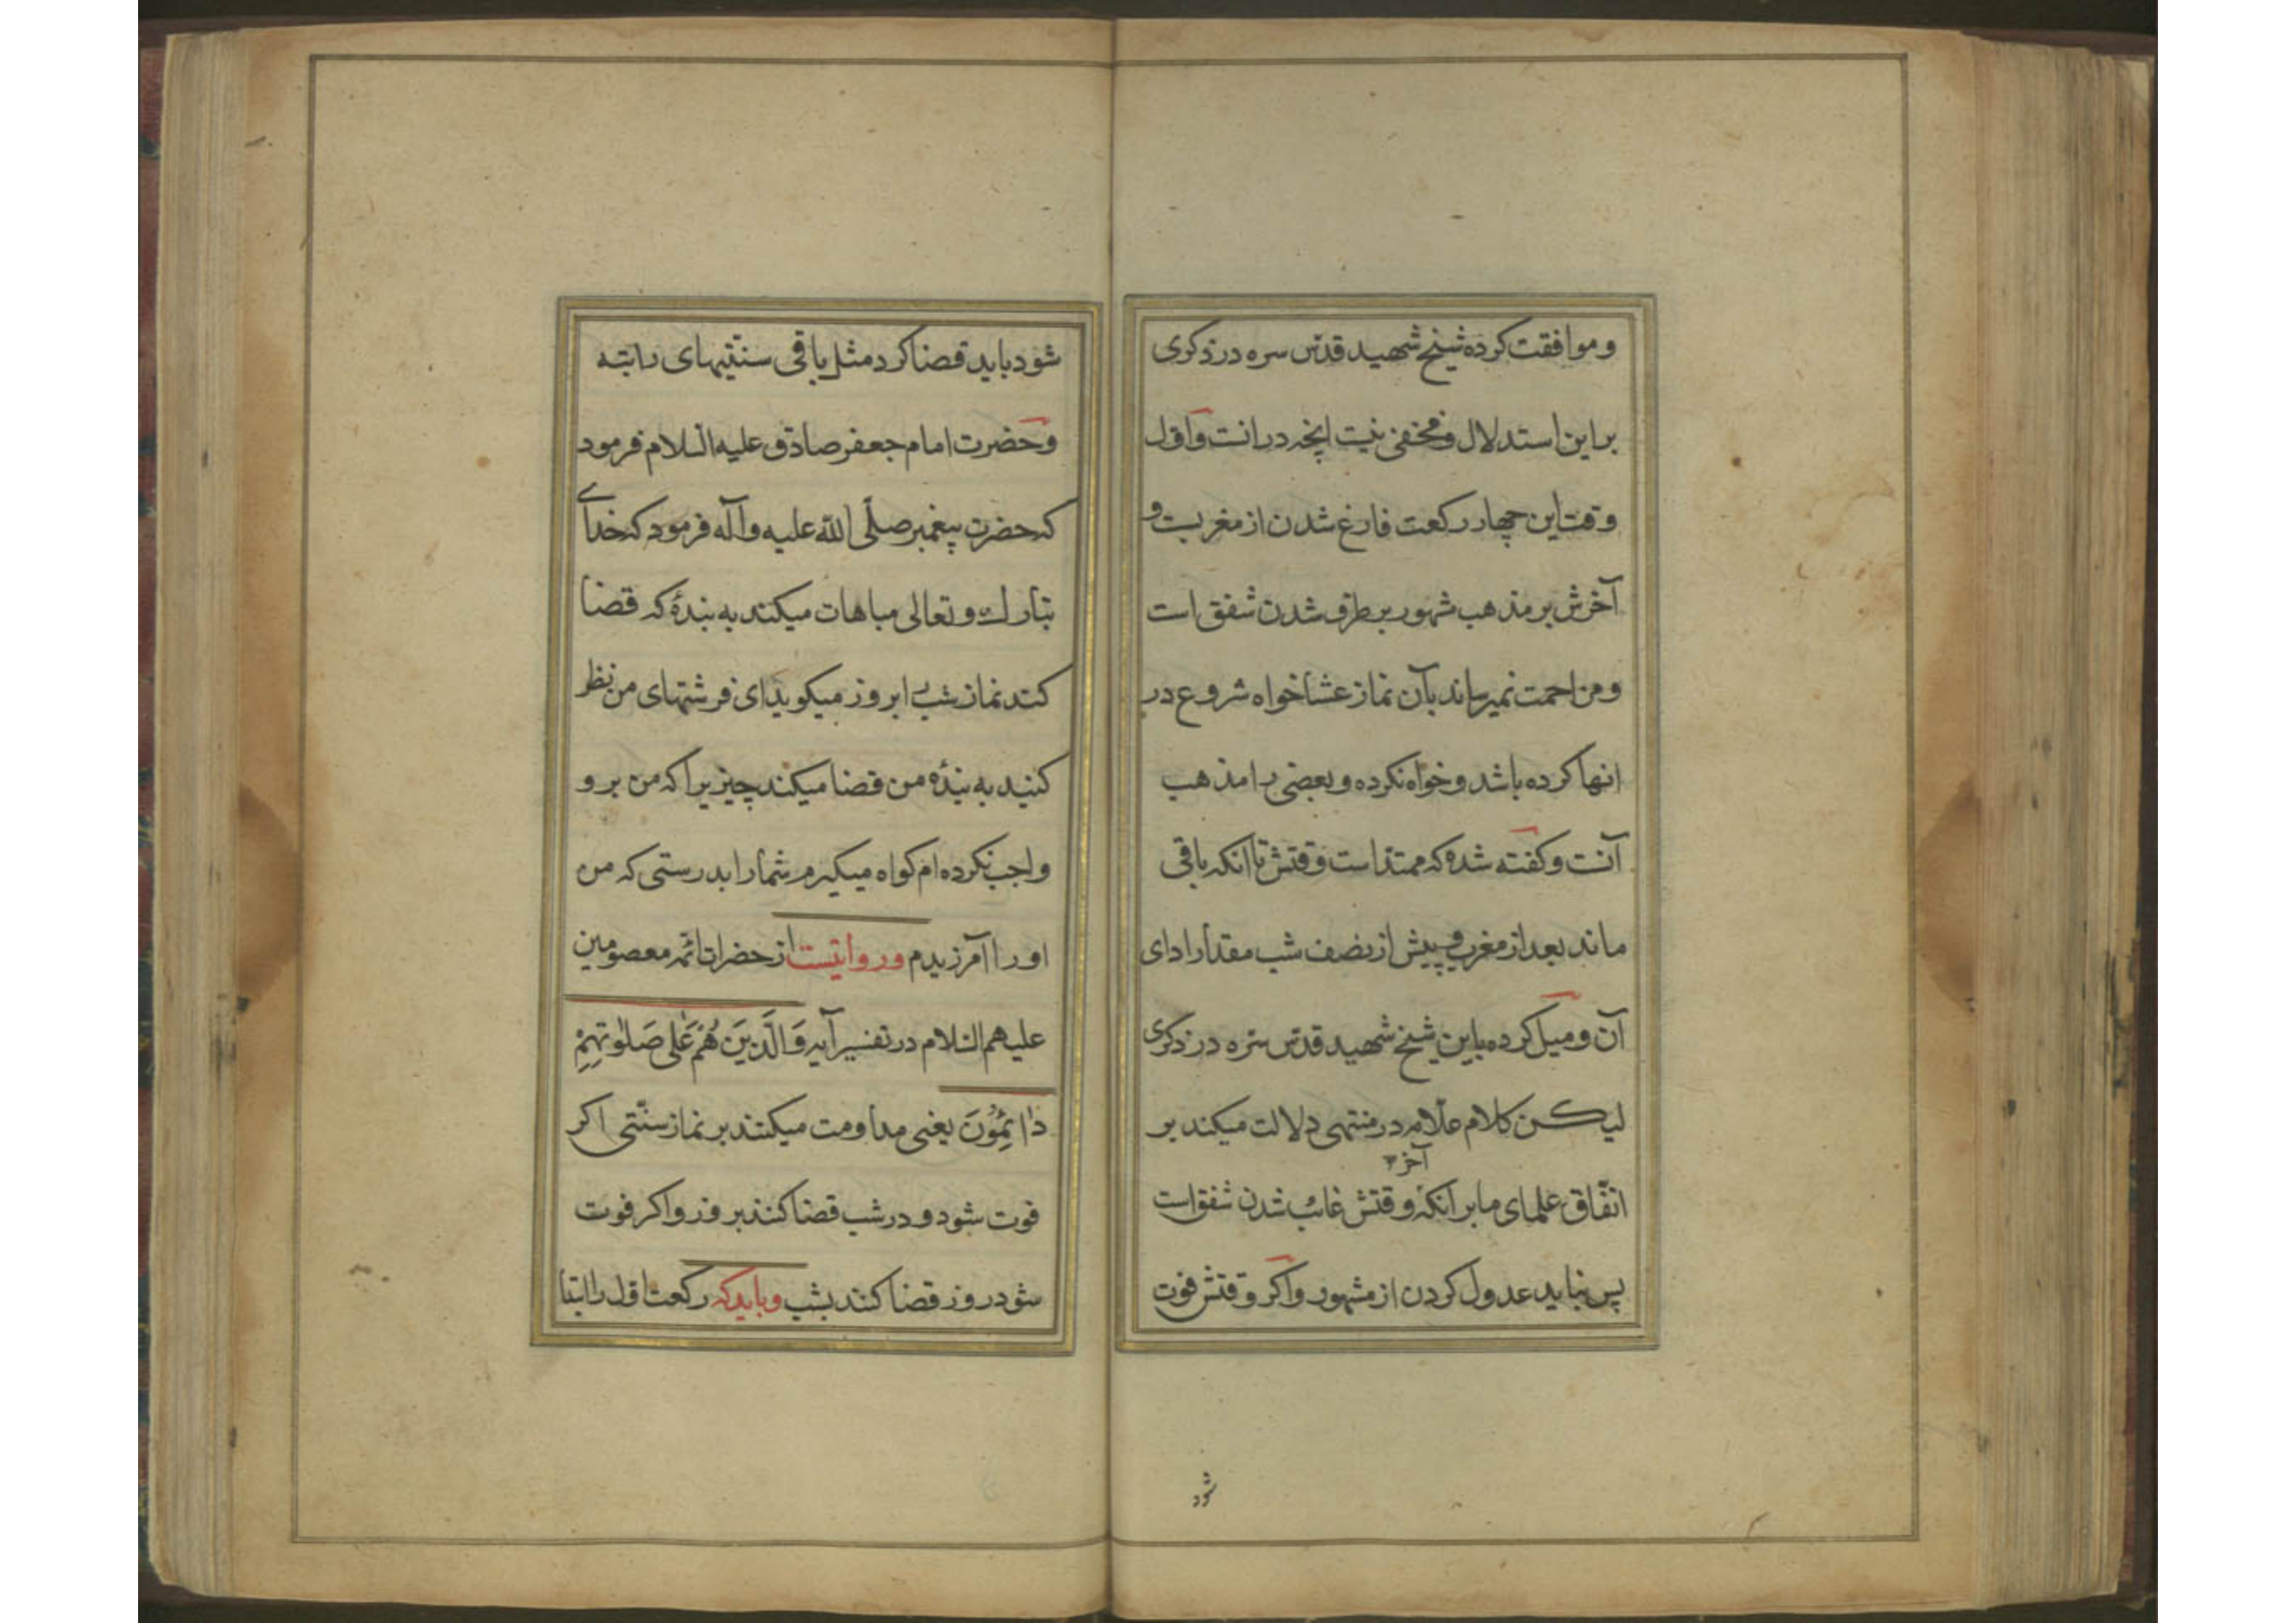 وموافقت کرده شیخ شهید قدّس سره در ذکری
براین استدلال و مخفی نیست انچه درانست و اوّل
وقت این چهار رکعت فارغ شدن از مغربست و
آخرش بر مذهب مشهور برطرف شدن شفق است
ومزاحمت نمیرساند بآن نماز عشا خواه شروع در
انها کرده باشد و خواه نکرده و بعضی را مذهب
آنست و کفته شده که ممتدّ است وقتش تا انکه باقی
ماند بعد از مغرب و پیش از نصف شب مقدار ادای
آن و میل کرده باین شیخ شهید قدّس سّره در ذکری
لیکن کلام علّامه در منتهی دلالت میکند بر
آخر
اتّفاق علمای ما بر آنکه وقتش غائب شدن شفق است
پس نباید عدول کردن از مشهور و اکر وقتش فوت
شود
شود باید قضا کرد مثل باقی سنّتیهای راتبه
وحضرت امام جعفر صادق علیه السّلام فرمود
که حضرت پیغمبر صلّی الله علیه وآله فرمود که خدای
تبارک و تعالی مباهات میکند به بندهٔ که قضا
کند نماز شب را بروز میکوید ای فرشتهای من نظر
کنید به بندهٔ من قضا میکند چیزیرا که من برو
واجب نکرده ام کواه میکیرم شما را بدرستی که من
اورا آمرزیدم و روایتست از حضرات ائمّه معصومین
علیهم السّلام در تفسیر آیه وَالَّذِینَ هُمْ عَلٰی صَلٰوتِهِمْ
دٰائِمُونَ یعنی مداومت میکنند بر نماز سنّتی اکر
فوت شود و در شب قضا کنند بروز و اکر فوت
شود در روز قضا کنند بشب و باید که رکعت اوّل را ابتدا